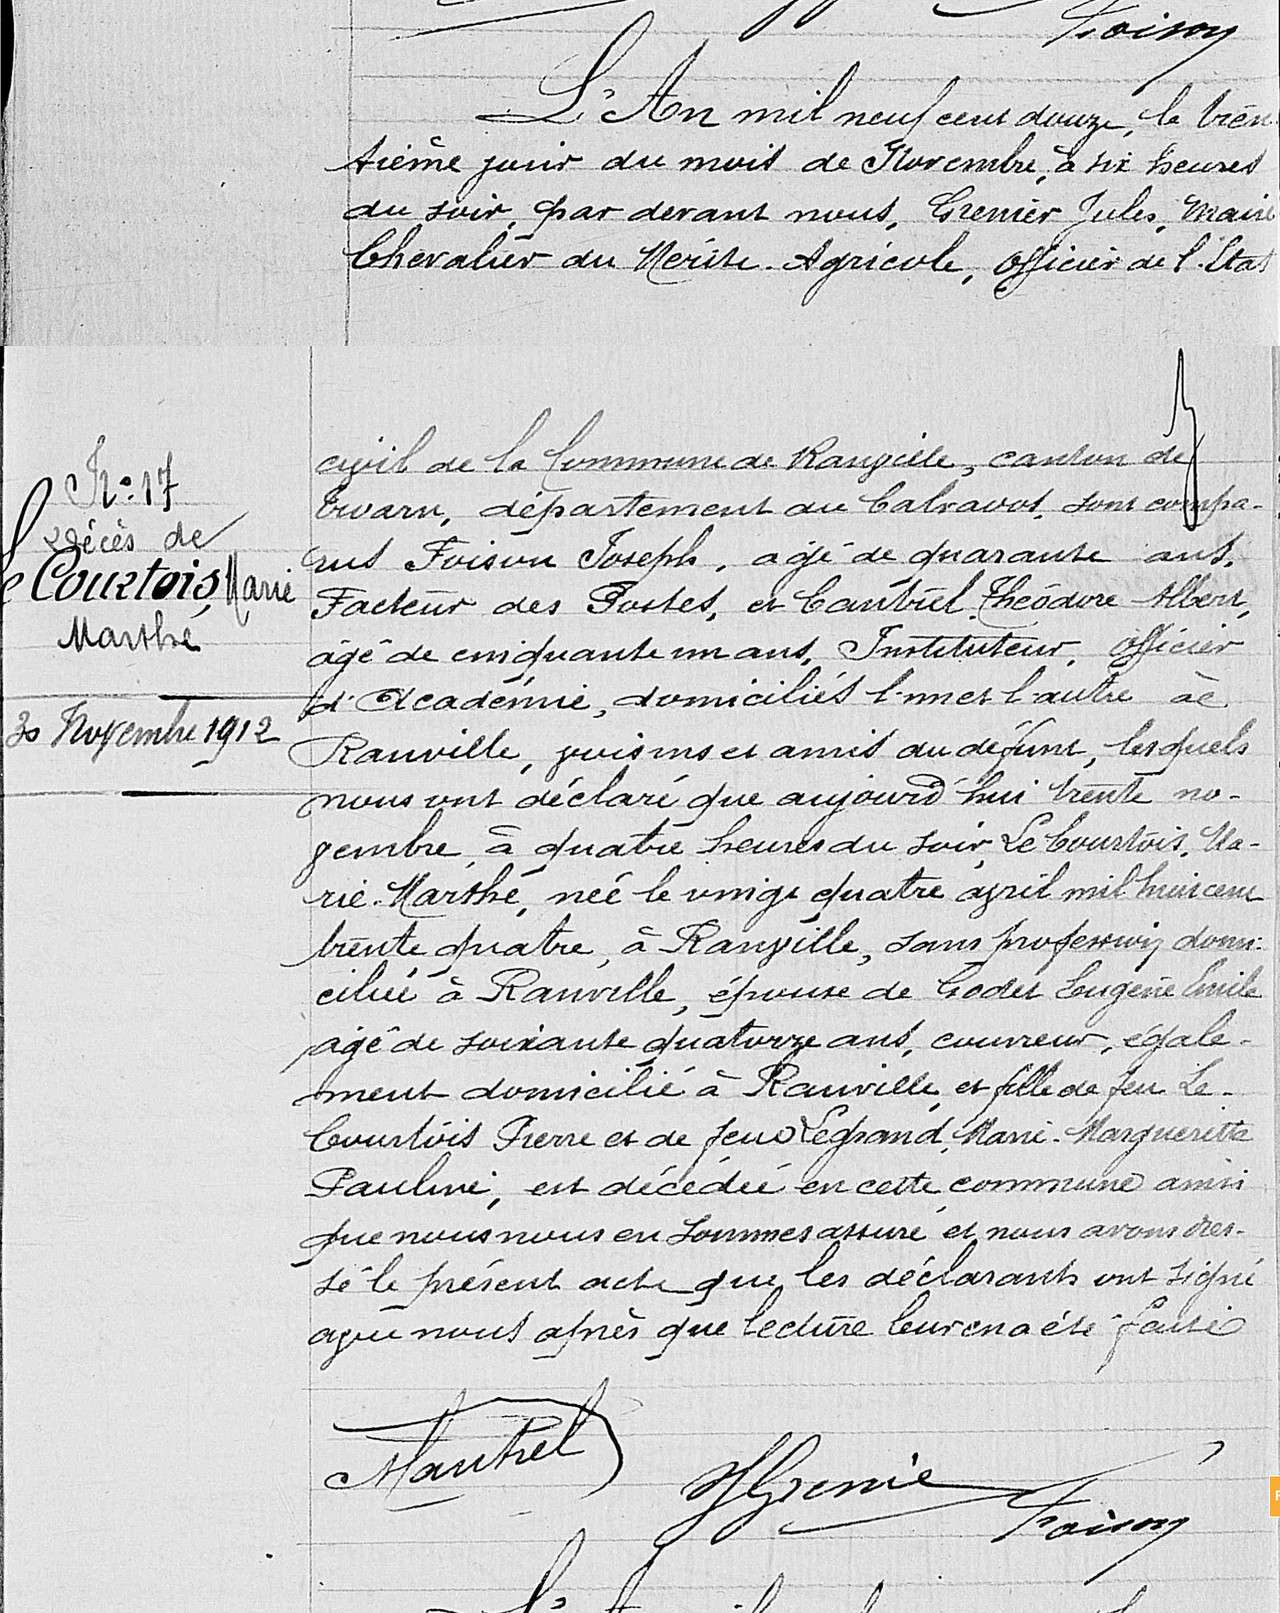 Foison
L'An mil neuf cent douze, le tren
tième jour du mois de Novembre, à six heures
du soir, par devant nous, Grenier Jules, Maire
Chevalier du Mérite Agricole, officier de l'Etat
civil de la Commune de Ranville, canton de
Troarn, département du Calvados, sont compa-
rus Foison Joseph, âgé de quarante ans,
Facteur des Postes, et Cautrel Théodore Albert,
âgé de cinquante un ans, Instituteur, officier
d'Académie, domiciliés l'un et l'autre à
Ranville, voisins et amis du défunt, lesquels
nous ont déclaré que aujourd'hui trente no-
vembre, à quatre heures du soir, Le Courtois, Ma-
rie Marthe, née le vingt quatre avril mil huit cent
trente quatre, à Ranville, sans profession, domi-
ciliée à Ranville, épouse de Godet Eugène Emile
âgé de soixante quatorze ans, couvreur, égale-
ment domicilié à Ranville, et fille de feu Le-
Courtois Pierre et de feue Legrand, Marie-Margueritte
Pauline, est décédée en cette commune ainsi
que nous nous en sommes assuré et nous avons dres-
sé le présent acte que les déclarants ont signé
avec nous après que lecture leur en a été faite
N° 17
Décès de
Le Courtois, Marie
Marthe
30 Novembre 1912
JGrenie
Foison